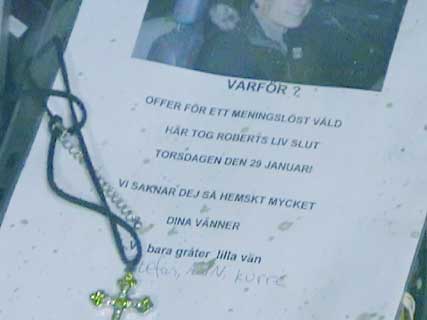 VARFÖR ?
OFFER FÖR ETT MENINGSLÖST VÅLD
HÄR TOG ROBERTS LIV SLUT
TORSDAGEN DEN 29 JANUARI
VI SAKNAR DEJ SÅ HEMSKT MYCKET
DINA VÄNNER
bara gråter lilla vän
kurre